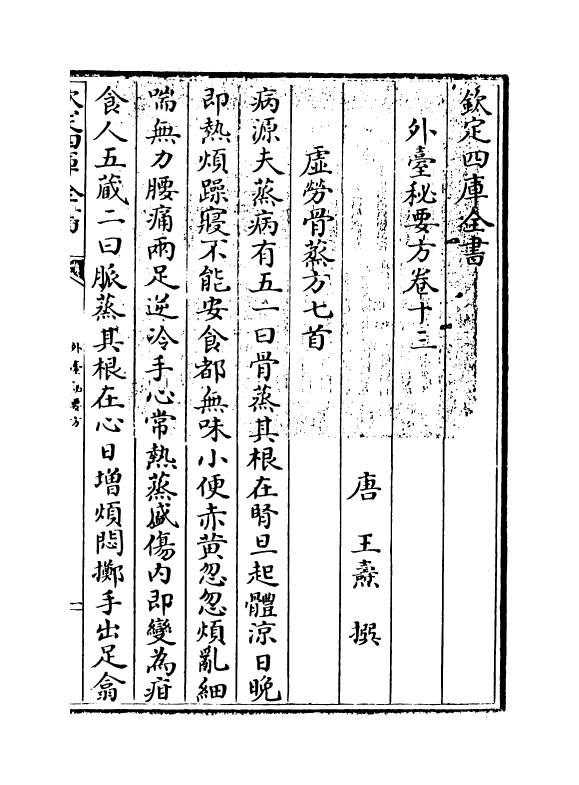 欽定四庫全書
外臺秘要方卷十三
唐 王燾 撰
虛勞骨蒸方七首
病源夫蒸病有五一曰骨蒸其根在腎旦起體涼日晚
即熱煩躁寢不能安食都無味小便赤黃忽忽煩亂細
喘無力腰痛兩足逆冷手心常熱蒸盛傷内即變為疳
食人五蔵二曰脈蒸其根在心日增煩悶擲手出足翕
欽定四庫全書
外臺秘要方
一